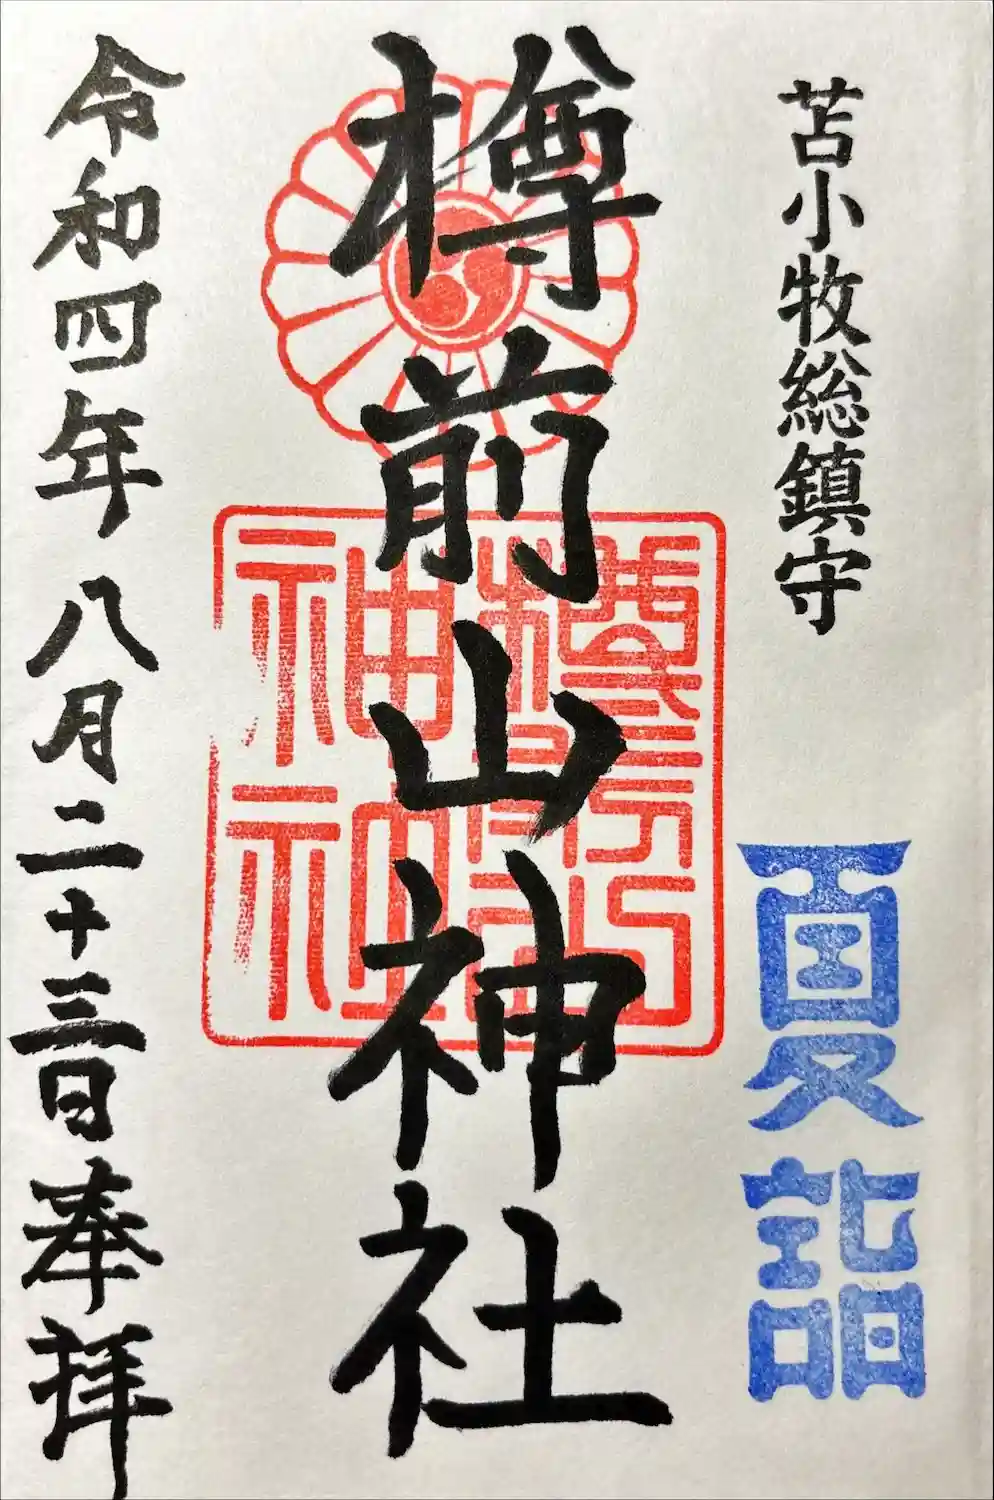 苫小牧総鎮守
夏詣
樽前山神社
令和四年八月二十三日奉拝